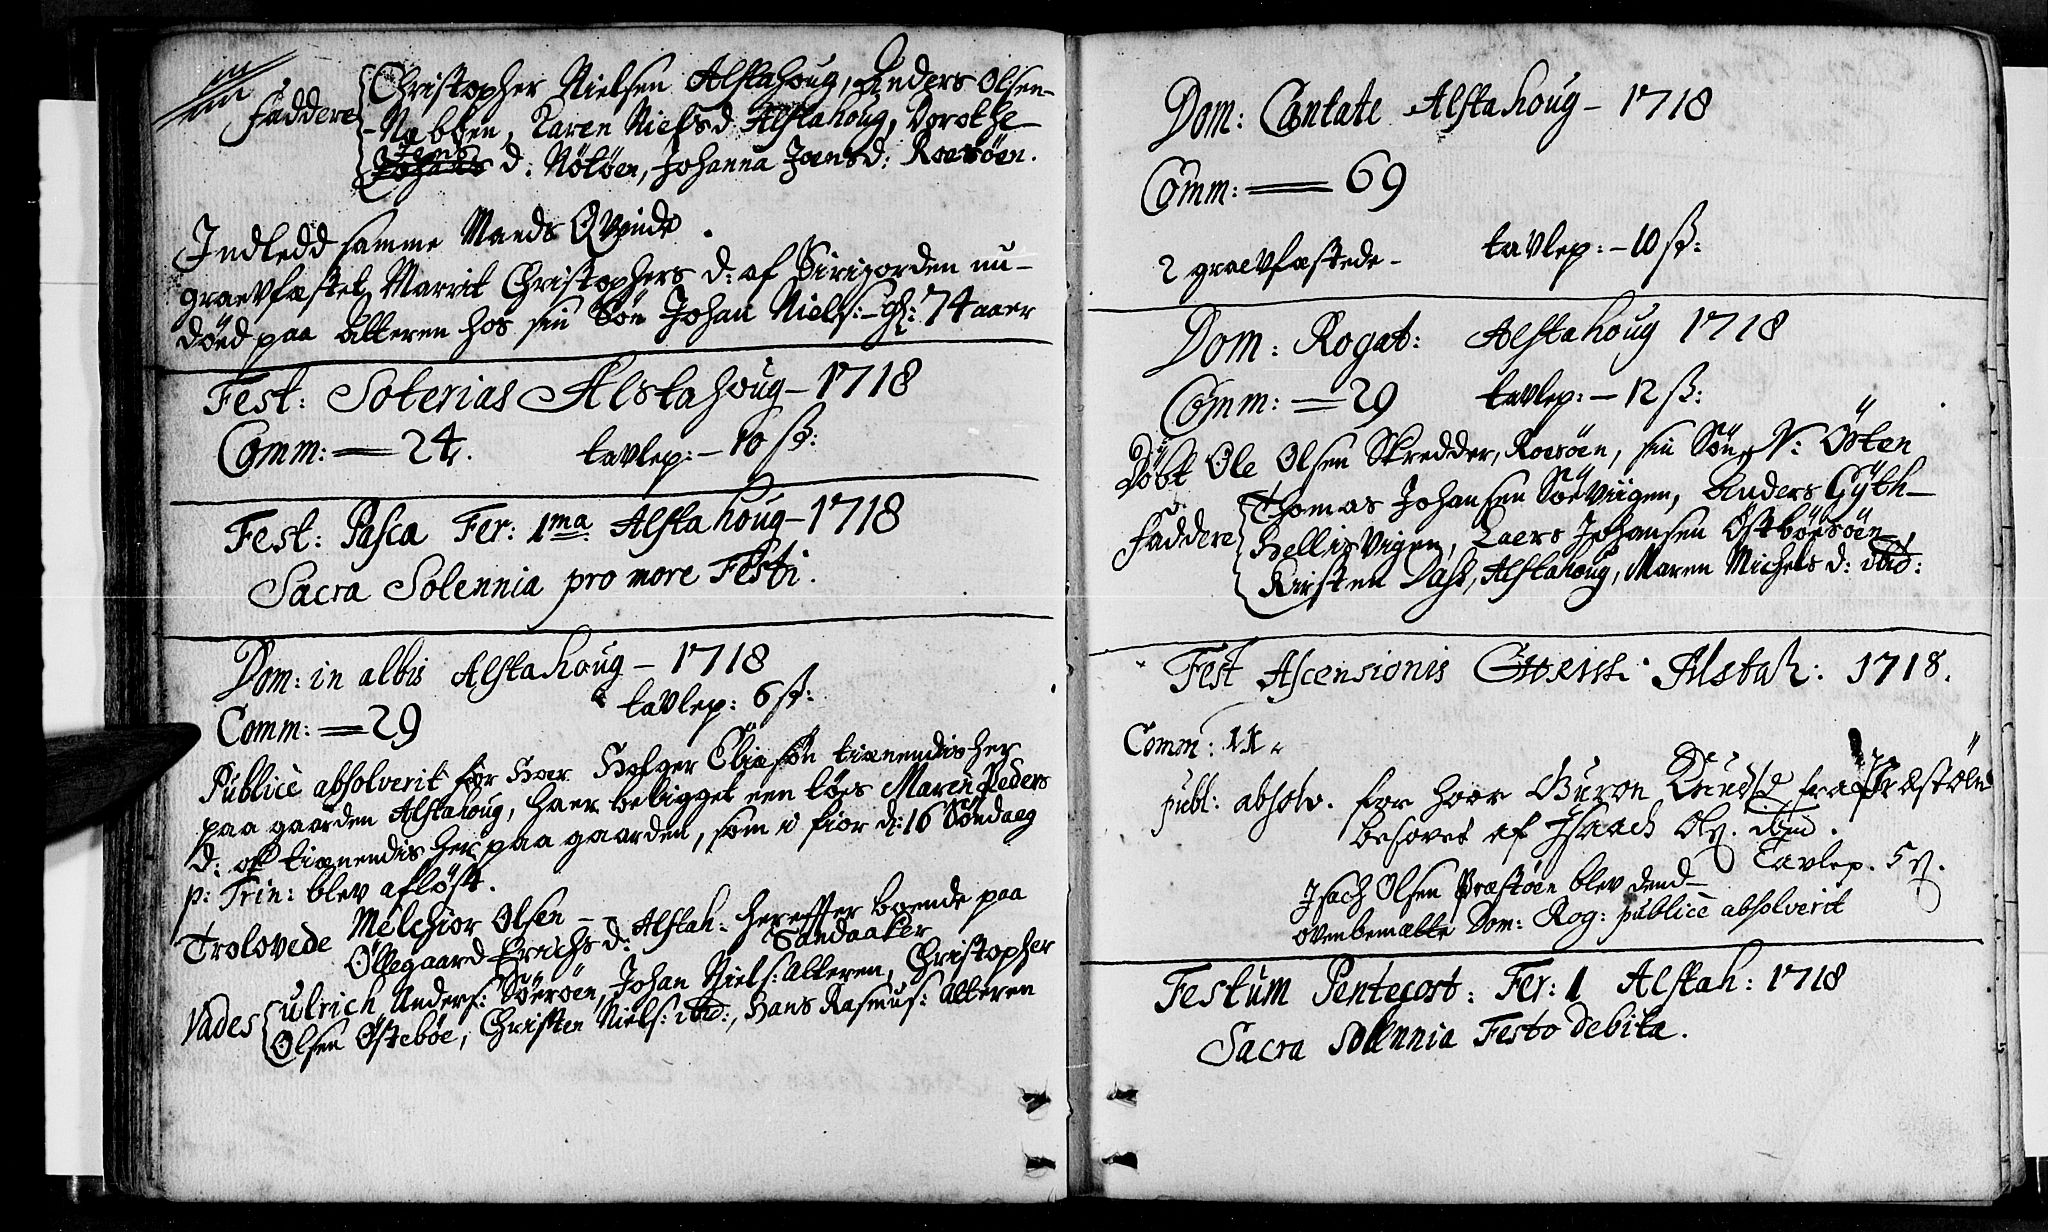 Christopher Nielsen Alstahoug, Anders Olsen-
Faddere -Nabben, Karen Nielsd Alstahoug, Dorothe
Jens d: Nötöen, Johanna Joensd: Roesöen.
Indledd samme Mands Qvinde.
graevfæstet Marrit Christophers d: af Sirigorden nu-
död paa Alteren hos sin Sön Johan Niels:- gl: 74 aaer
Fest: Soterias Alstahoug - 1718
Comm: = 24. tavlep: - 10 ß:
Fest: Pasca Fer: 1ma Alstahoug - 1718
Sacra Solennia pro more Festi.
Dom: in albis Alstahoug - 1718
Comm: = 29 tavlep: 6 ß:
Publicè absolverit for Hoer Holger Eliasön tienendis her
paa gaarden Alstahoug, haer beligget een löes Maren Peders
d: og tienendis her paa gaarden, som i fior d: 16 Söndaeg
p: Trin: blev aflöst.
Trolovede Melchior Olsen -
Öllegaard Erichs d: Alstah: hereffter boende paa
Sandaaker
Vades Ulrich Anders: Söeröen, Johan Niels: Alteren, Christopher
Olsen Östeböe, Christen Niels: ibid:, Hans Rasmus: Alteren
Dom: Cantate Alstahoug - 1718
Comm: = 69
2 graevfæstede - tavlep: - 10 ß:
Dom: Rogat: Alstahoug 1718
Comm: = 29 tavlep: - 12 ß:
Döbt Ole Olsen Skredder, Roesöen, sin Sön, N: Östen
Thomas Johansen Söeviigen, Anders Gÿth-
Faddere Hellisvigen, Laers Johansen Östböesöen,
Kirsten Dass, Alstahoug, Maren Michels d: ibid:
Fest Ascensionis Christi Alstah: 1718.
Comm: 11.
publ: absolv. for hoor Guron Knudsd fra Præstöen
besovet af Isaach Ols. ibid.
Tavlep. 5 ß.
Isach Olsen Præstöen blev dend-
ovenbemælte Dom: Rog: publicè absolverit
Festum Pentecost: Fer: 1 Alstah: 1718
Sacra Solennia Festo debita.